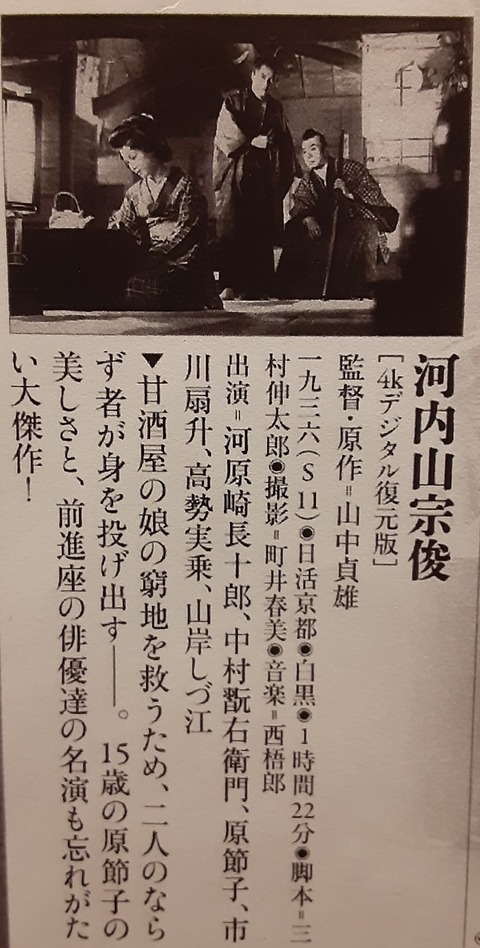 河内山宗俊
［4kデジタル復元版］
監督・原作＝山中貞雄
一九三六（S 11）◉日活京都◉白黒◉1時間22分◉脚本＝三
村伸太郎◉撮影＝町井春美◉音楽＝西梧郎
出演＝河原崎長十郎、中村翫右衛門、原節子、市
川扇升、高勢実乗、山岸しづ江
▼甘酒屋の娘の窮地を救うため、二人のなら
ず者が身を投げ出す――。15歳の原節子の
美しさと、前進座の俳優達の名演も忘れがた
い大傑作！